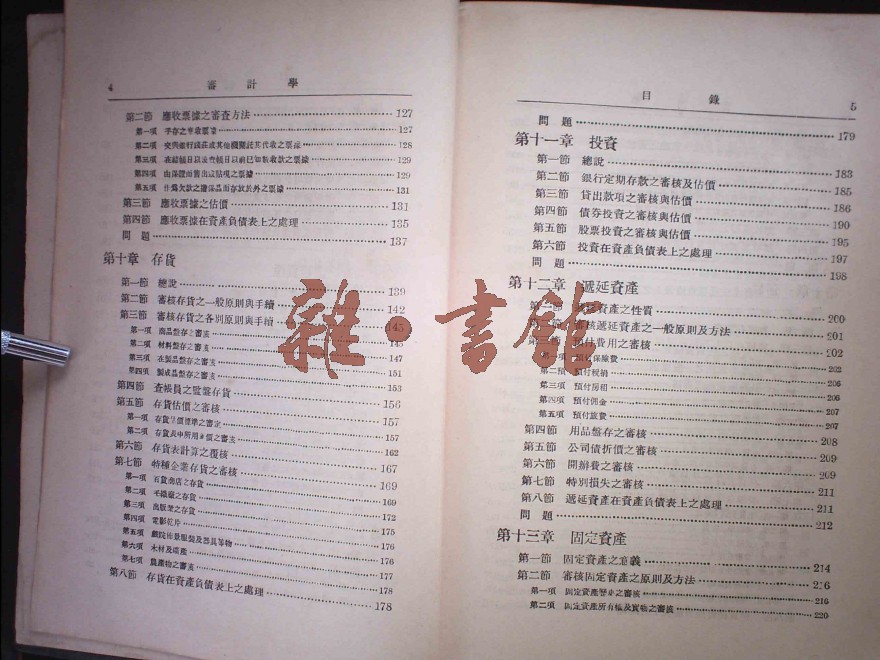 4 審計學
第二節 應收票據之審查方法 127
第一項 手存之應收票據 127
第二項 128
第三項 129
第四項 129
第五項 131
第三節 應收票據之估價 131
第四節 應收票據在資產負債表上之處理 135
問題 137
第十章 存貨
第一節 總說 139
第二節 審核存貨之一般原則與手續 142
第三節 審核存貨之各別原則與手續 145
第一項 商品盤存之審核 145
第二項 材料盤存之審核 147
第三項 在製品盤存之審核 151
第四項 製成品盤存之審核 153
第四節 查帳員之監盤存貨 156
第五節 存貨估價之審核 157
第一項 存貨估價標準之審定 157
第二項 存貨表中所用單價之審核 162
第六節 存貨表計算之覆核 167
第七節 特種企業存貨之審核 169
第一項 百貨商店之存貨 169
第二項 毛織廠之存貨 172
第三項 出版業之存貨 175
第四項 電影底片 176
第五項 戲院佈景服裝及器具等物 176
第六項 木材及煤礦 177
第七項 農產物之審核 178
第八節 存貨在資產負債表上之處理 178
目錄 5
問題 179
第十一章 投資
第一節 總說 183
第二節 銀行定期存款之審核及估價 185
第三節 貸出款項之審核與估價 186
第四節 債券投資之審核與估價 190
第五節 股票投資之審核與估價 195
第六節 投資在資產負債表上之處理 197
問題 198
第十二章 遞延資產
第一節 遞延資產之性質 200
第二節 審核遞延資產之一般原則及方法 201
第三節 預付費用之審核 202
第一項 預付保險費 202
第二項 預付稅捐 206
第三項 預付房租 206
第四項 預付佣金 207
第五項 預付旅費 207
第四節 用品盤存之審核 208
第五節 公司債折價之審核 209
第六節 開辦費之審核 209
第七節 特別損失之審核 211
第八節 遞延資產在資產負債表上之處理 211
問題 212
第十三章 固定資產
第一節 固定資產之意義 214
第二節 審核固定資產之原則及方法 216
第一項 固定資產歷史之審核 216
第二項 固定資產所有權及實物之審核 220
雜·書館